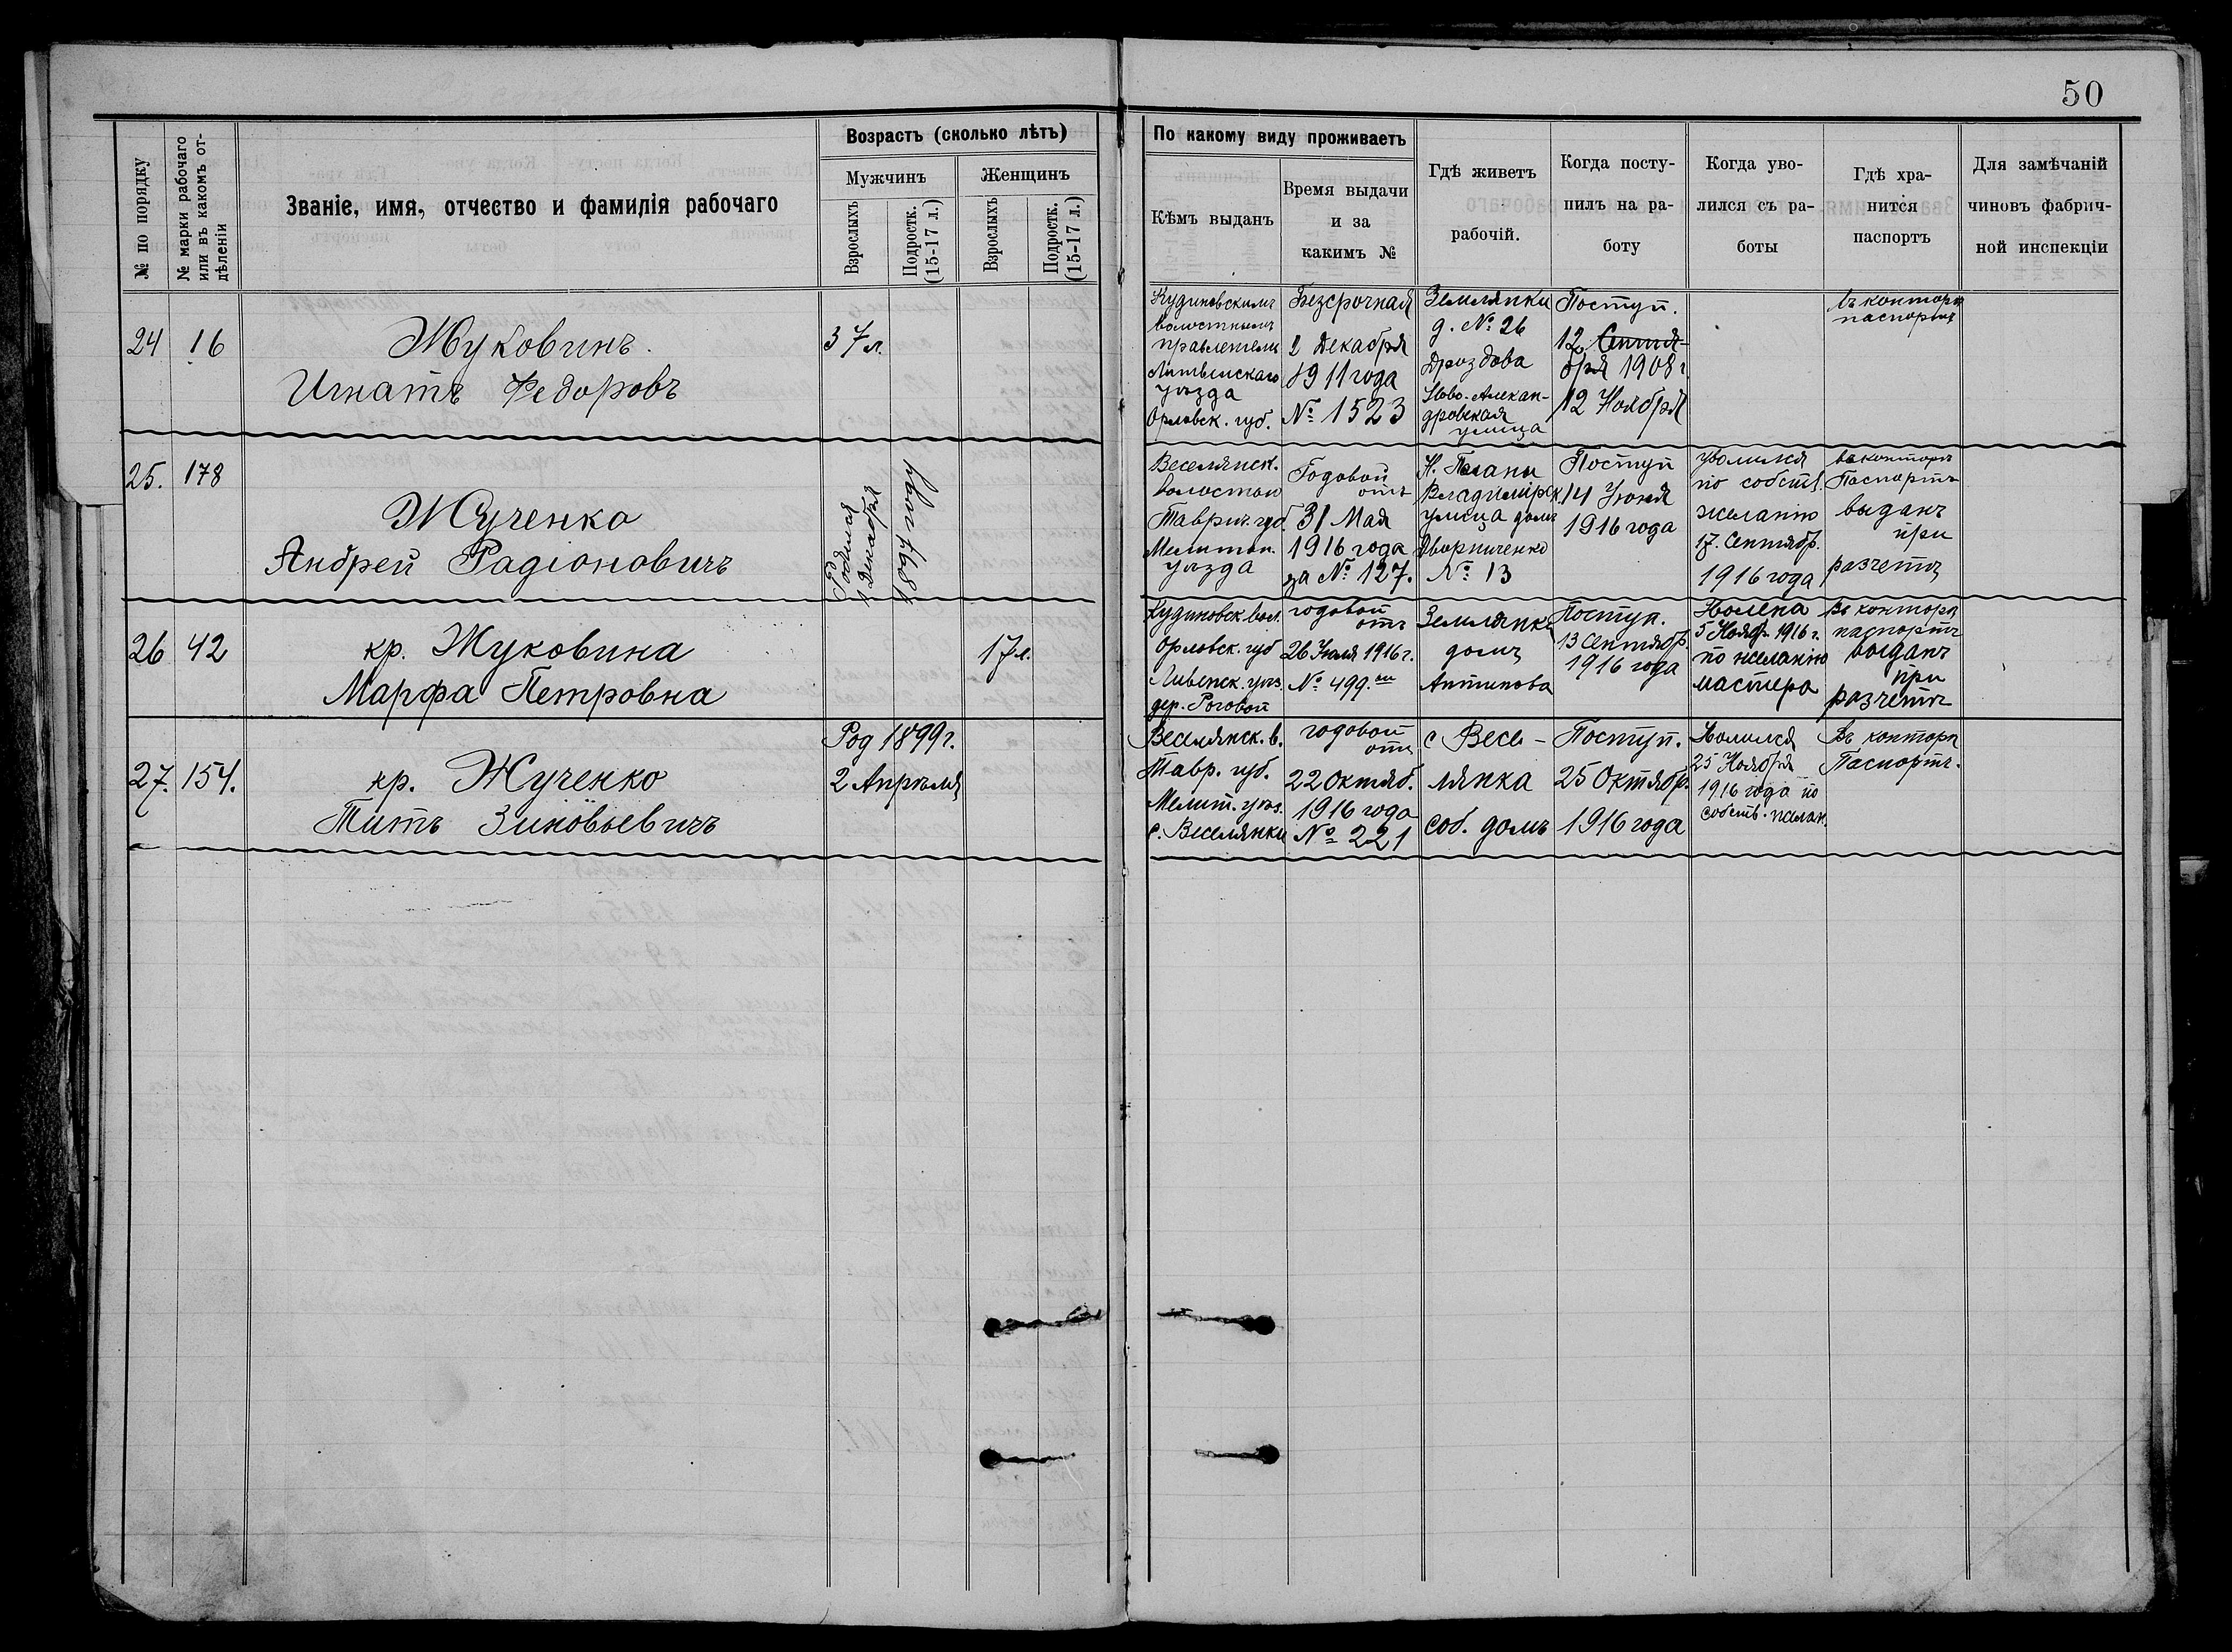 50
№ по порядку
№ марки рабочаго
или въ какомъ от-
дѣленіи
Званіе, имя, отчество и фамилія рабочаго
Возрастъ (сколько лѣтъ)
Мужчинъ
Женщинъ
Взрослыхъ
Подростк.
(15-17 л.)
Взрослыхъ
Подростк.
(15-17 л.)
По какому виду проживаетъ
Кѣмъ выданъ
Время выдачи
и за
какимъ №
Гдѣ живетъ
рабочій.
Когда посту-
пилъ на ра-
боту
Когда уво-
лился съ ра-
боты
Гдѣ хра-
нится
паспортъ
Для замѣчаній
чиновъ фабрич-
ной инспекціи
24
16
Жуковинъ.
Игнатъ Федоровъ
37 л.
Кудиновскимъ
волостнымъ
правленіемъ
уѣзда
Орловск. губ.
Безсрочная
2 Декабря
1911 года
№ 1523
Землянки
д. № 26
Дроздова
Ново-Алекан-
дровская
улица
Поступ.
12 Сентя-
бря 1908 г.
12 Ноября
въ конторѣ
паспортъ
25.
178
Жученко
Андрей Радіоновичъ
1 Декабря
1897 году
Веселянск.
волостью
Таврич. губ.
Мелитоп.
уѣзда
Годовой
отъ
31 Мая
1916 года
за № 127.
Владимірск.
улица домъ
Дворниченко
№ 13
Поступ
14 Іюня
1916 года
уволился
по собств.
желанію
17. Сентябр.
1916 года
въ конторѣ
Паспортъ
выданъ
при
разчетѣ
26
42
кр. Жуковина
Марфа Петровна
17 л.
Кудиновск. вол.
Орловск. губ
Ливенск. уѣз.
дер. Роговой
годовой
отъ
26 Іюля 1916 г.
№ 499.
Землянки
домъ
Антипова
Поступ.
13 Сентябр.
1916 года
5 Ноябр. 1916 г.
по желанію
мастера
Въ конторѣ
паспортъ
выданъ
при
разчетѣ
27.
154.
кр. Жученко
Титъ Зиновьевичъ
Род 1899 г.
2 Апрѣля
Веселянск. в.
Тавр. губ.
Мелит. уѣз.
с. Веселянки
годовой
отъ
22 Октяб.
1916 года
№ 221
с Весе-
лянка
соб. домъ
Поступ.
25 Октябр.
1916 года
Уволился
25 Ноября
1916 года по
собств. желан.
Въ конторѣ
Паспортъ.